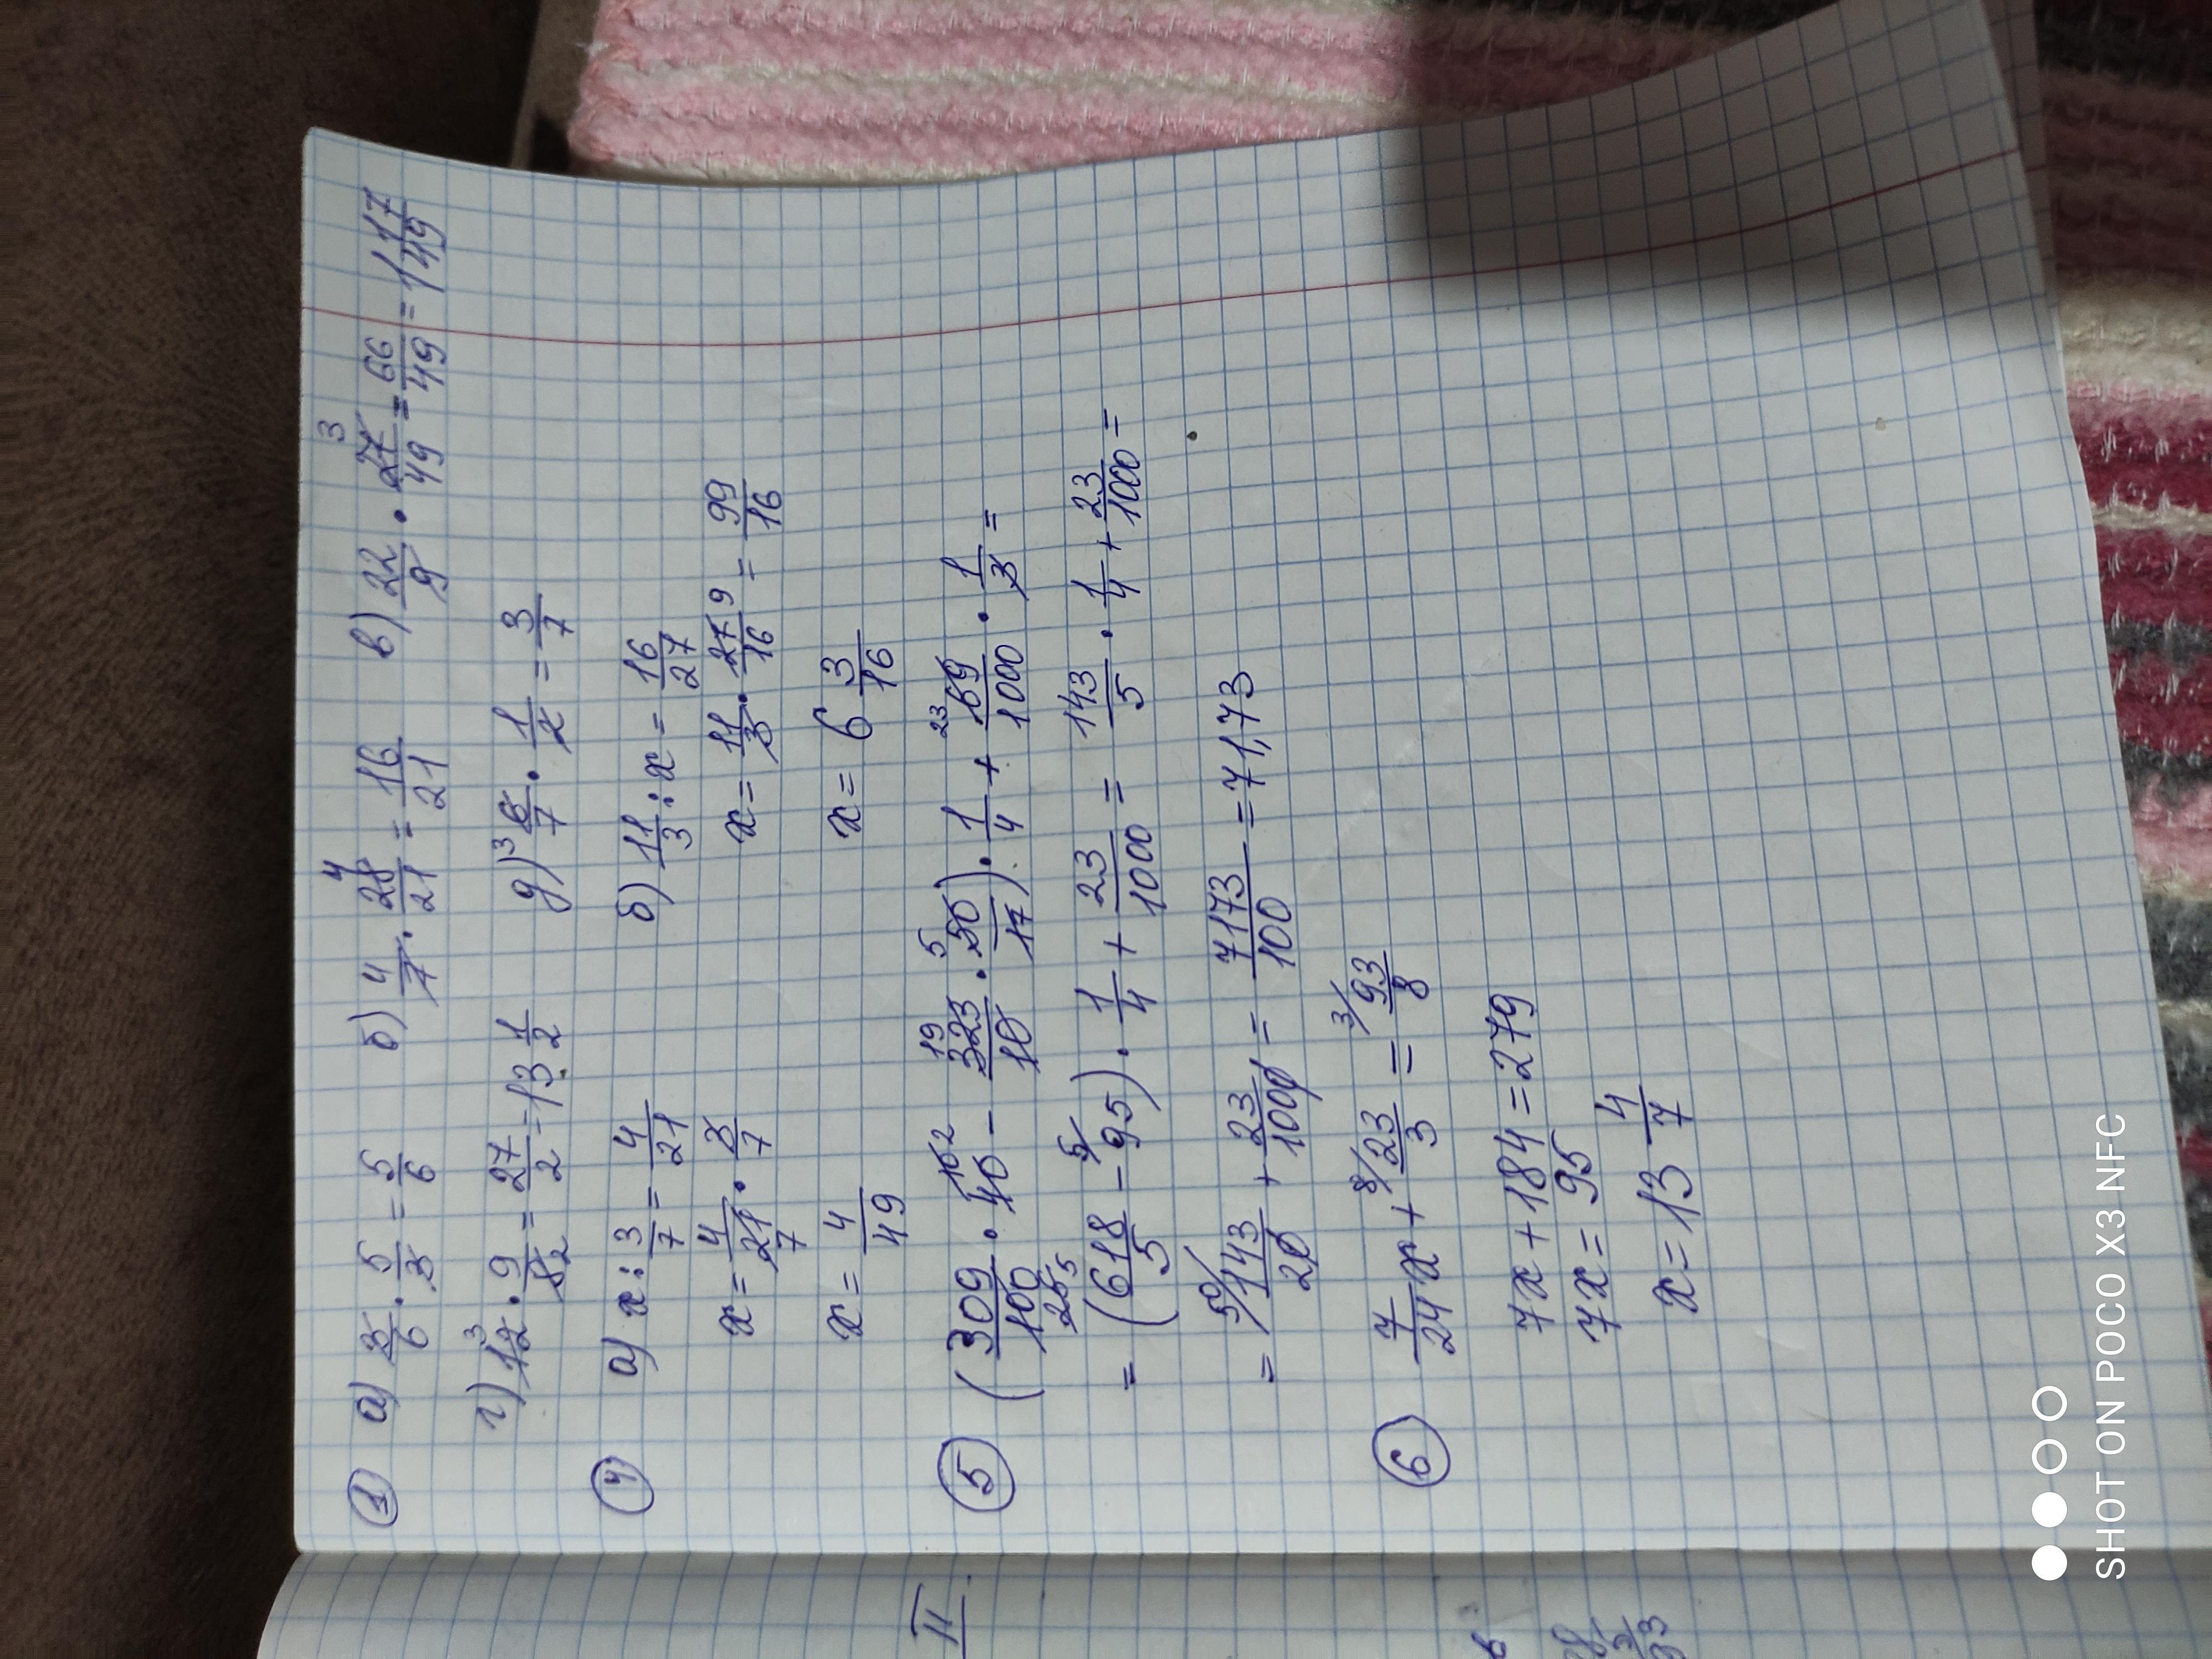 ① а) 5/6 · 5/3 = 5/6 б) 4/7 · 28/21 = 16/21 в) 22/9 · 27/49 = 66/49 = 1 17/49
г) 12 · 9/8 = 27/2 = 13 1/2 д) 6/7 · 1/2 = 3/7
④ а) x : 3/7 = 4/21 б) 11/3 : x = 16/27
x = 4/21 · 3/7 x = 11/3 · 27/16 = 99/16
x = 4/49 x = 6 3/16
⑤ (309/100 · 40 - 323/10 · 50/17) · 1/4 + 69/1000 · 1/3 =
= (618/5 - 95) · 1/4 + 23/1000 = 143/5 · 1/4 + 23/1000 =
= 143/20 + 23/1000 = 7173/100 = 71,73
⑥ 7/24 x + 23/3 = 93/8
7x + 184 = 279
7x = 95
x = 13 4/7
II
SHOT ON POCO X3 NFC